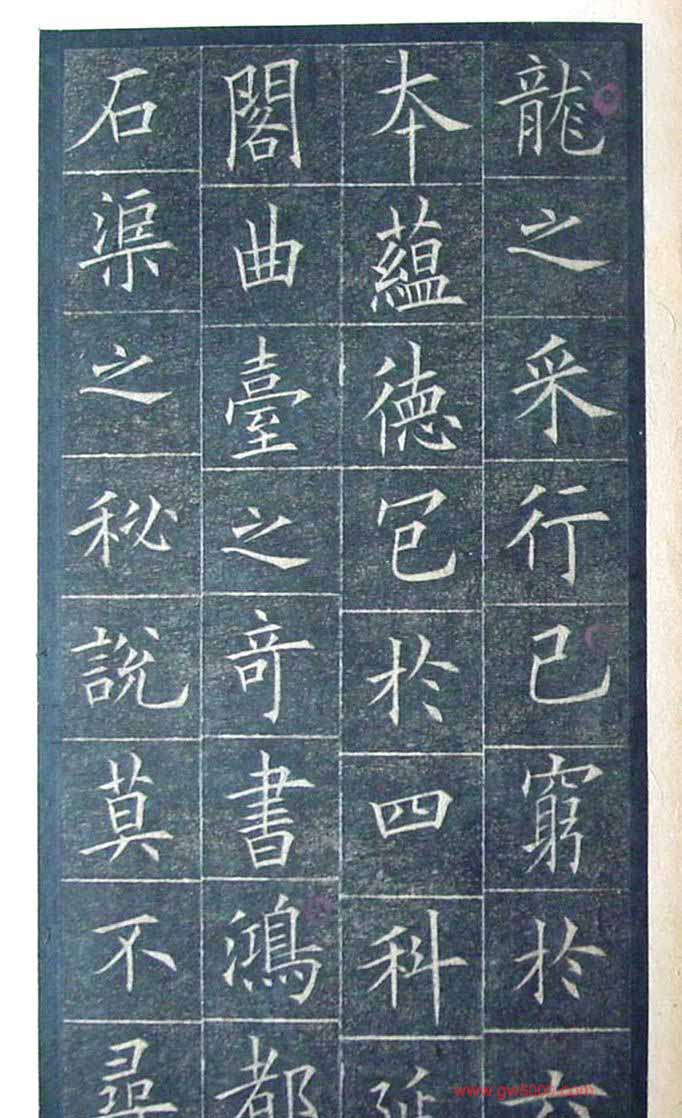 龍之采行己窮於
夲蘊德包於四科延
閣曲臺之竒書鴻都
石渠之秘說莫不尋
www.gw5000.com